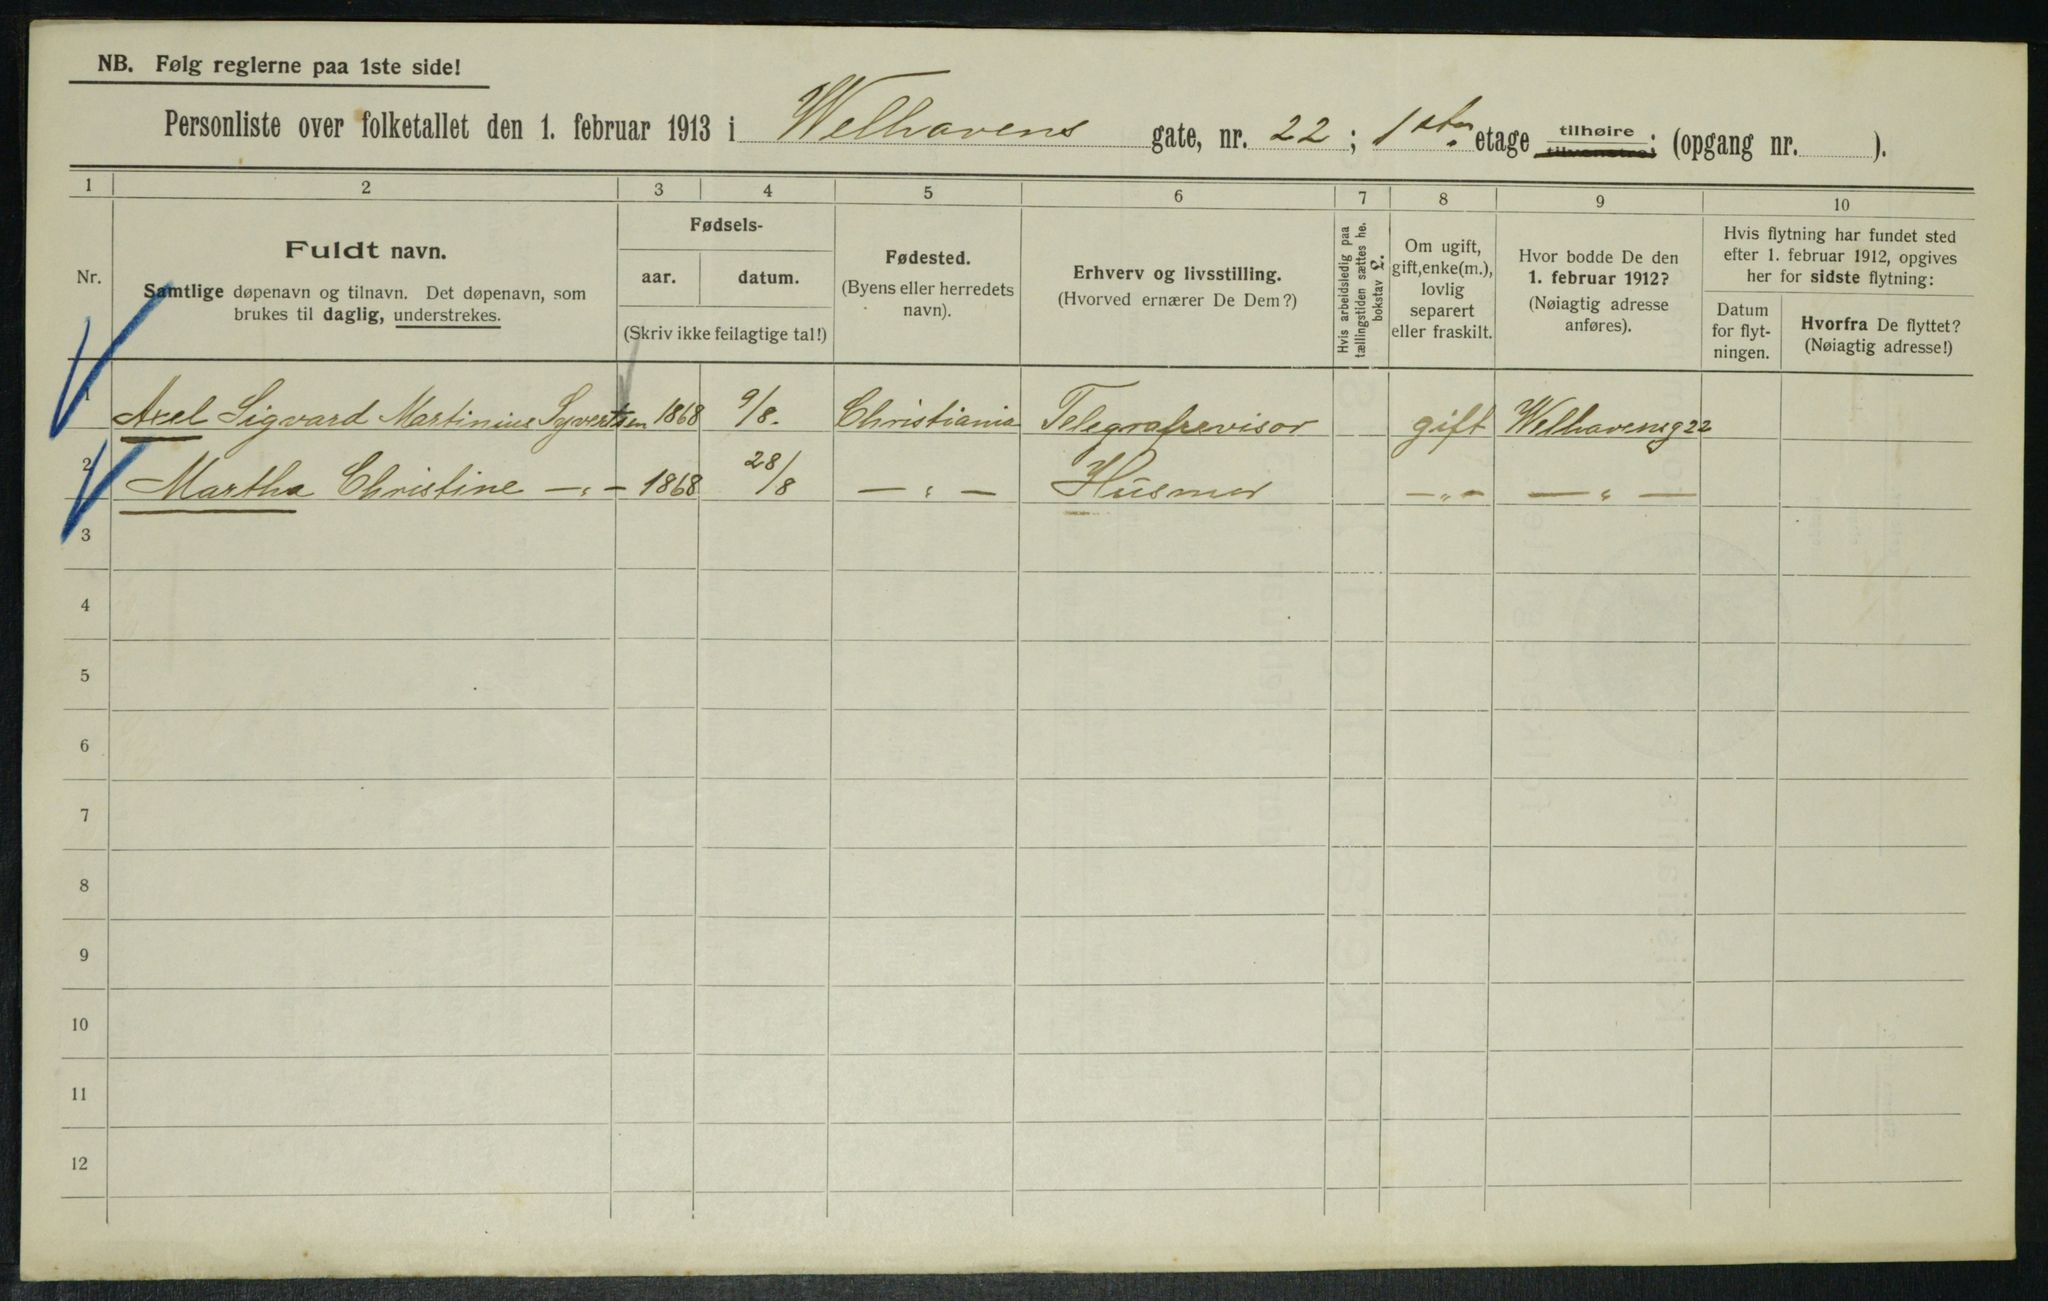 NB. Følg reglerne paa 1ste side!
Personliste over folketallet den 1. februar 1913 i Welhavens gate, nr. 22; 1ste etage tilhøire tilvenstre; (opgang nr. ).
1 2 3 4 5 6 7 8 9 10
Nr.
Fuldt navn.
Samtlige døpenavn og tilnavn. Det døpenavn, som
brukes til daglig, understrekes.
Fødsels-
aar. datum.
(Skriv ikke feilagtige tal!)
Fødested.
(Byens eller herredets
navn).
Erhverv og livsstilling.
(Hvorved ernærer De Dem?)
Hvis arbeidsledig paa
tællingstiden sættes he.
bokstav L.
Om ugift,
gift, enke(m.),
lovlig
separert
eller fraskilt.
Hvor bodde De den
1. februar 1912?
(Nøiagtig adresse
anføres).
Hvis flytning har fundet sted
efter 1. februar 1912, opgives
her for sidste flytning:
Datum
for flyt-
ningen.
Hvorfra De flyttet?
(Nøiagtig adresse!)
1 Axel Sigvard Martinius Syvertsen 1868 9/8. Christiania Telegrafrevisor gift Welhavensg 22
2 Martha Christine — „ — 1868 28/8 — „ — Husmor — „ — — „ —
3
4
5
6
7
8
9
10
11
12